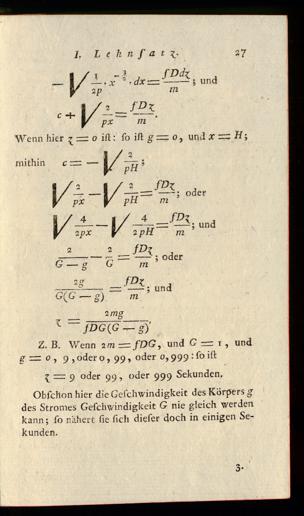 I. Lehnſatz. 27
— √ 1/2p · x^{-3/2} · dx = fDdz/m; und
c + √ 2/px = fDz/m.
Wenn hier z = 0 iſt: ſo iſt g = 0, und x = H;
mithin c = — √ 2/pH;
√ 2/px — √ 2/pH = fDz/m; oder
√ 4/2px — √ 4/2pH = fDz/m; und
2/G — g — 2/G = fDz/m; oder
2g/G(G — g) = fDz/m; und
z = 2mg/fDG(G — g).
Z. B. Wenn 2m = fDG, und G = 1, und
g = 0, 9, oder 0, 99, oder 0, 999: ſo iſt
z = 9 oder 99, oder 999 Sekunden.
Obſchon hier die Geſchwindigkeit des Körpers g
des Stromes Geſchwindigkeit G nie gleich werden
kann; ſo nähert ſie ſich dieſer doch in einigen Se-
kunden.
3.